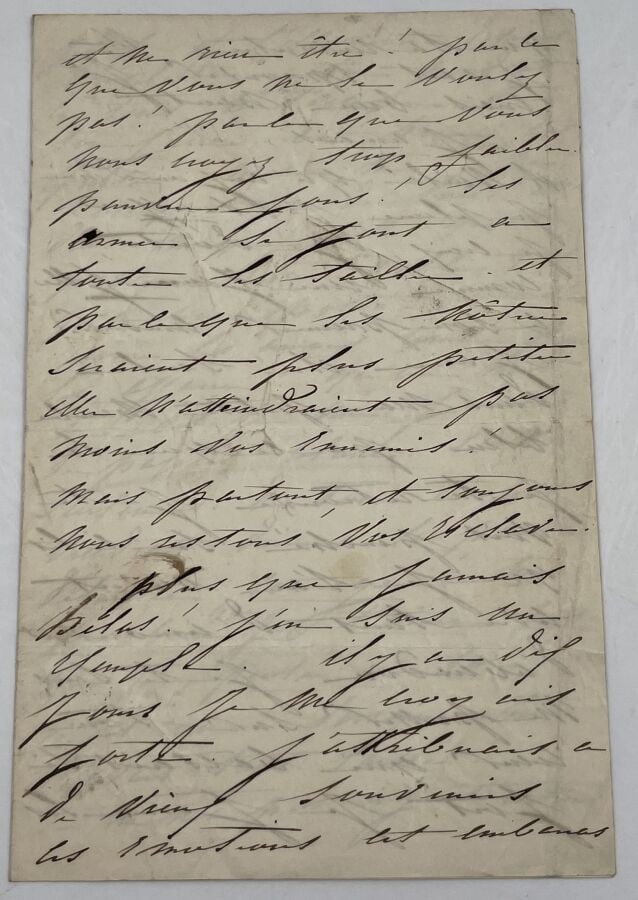 et ne rien être! parce
que vous ne le voulez
pas! parce que vous
nous croyez trop faibles.
pauvres fous! les
armes se font a
toutes les tailles. et
parceque les nôtres
seraient plus petites
elles n'atteindraient pas
moins vos ennemis!
mais partout, et toujours
nous restons vos esclaves.
plus que jamais
hélas! j'en suis un
exemple. il y a dix
jours je me croyais
forte. j'attribuais a
de vieux souvenirs
les émotions et embarras